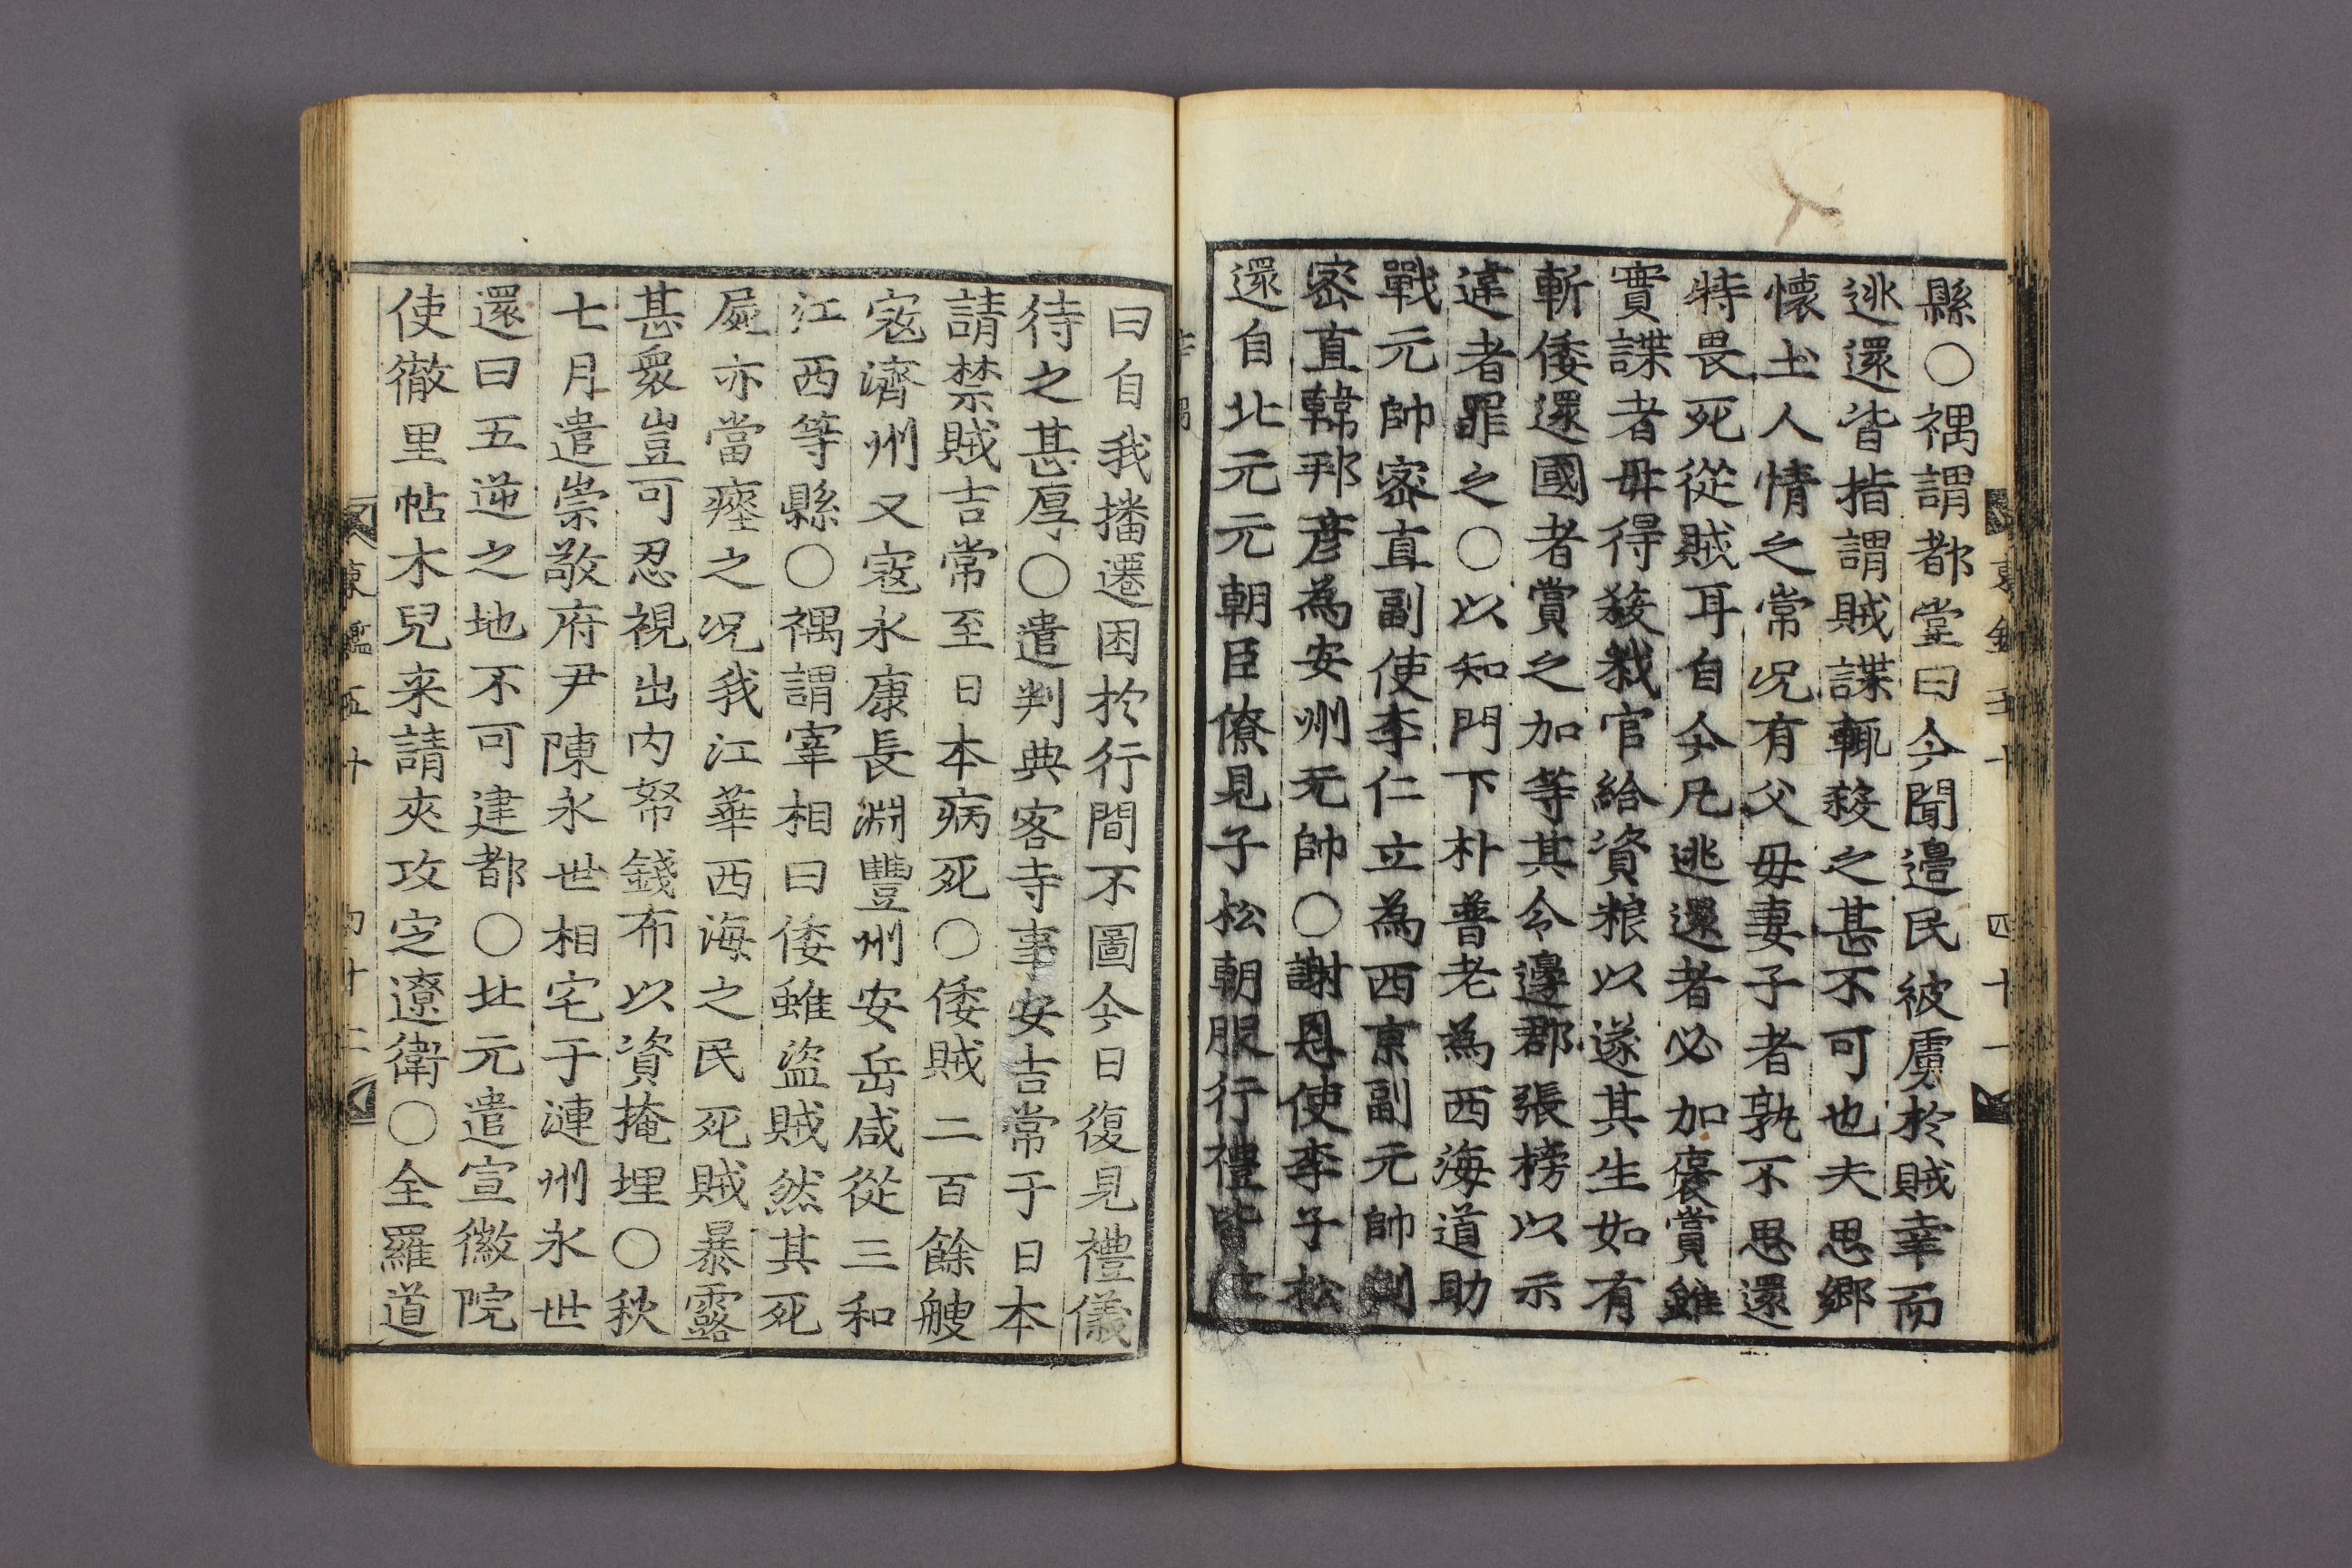 縣○禑謂都堂曰今聞邊民彼虜於賊幸而
逃還皆指謂賊諜輒殺之甚不可也夫思鄉
懷土人情之常况有父毋妻子者孰不思還
特畏死從賊耳自今凡逃還者必加褒賞雖
實諜者毋得殺戮官給資粮以遂其生如有
斬倭還國者賞之加等其令邊郡張榜以示
違者罪之○以知門下朴普老為西海道助
戰元帥密直副使李仁立為西京副元帥判
密直韓邦彦為安州元帥○謝恩使李子松
還自北元元朝臣僚見子松朝服行禮皆泣
曰自我播遷困於行間不圖今日復見禮儀
待之甚厚○遣判典客寺事安吉常于日本
請禁賊吉常至日本病死○倭賊二百餘艘
寇濟州又寇永康長淵豐州安岳咸從三和
江西等縣○禑謂宰相曰倭雖盜賊然其死
屍亦當瘞之况我江華西海之民死賊暴露
甚衆豈可忍視出内帑錢布以資掩埋○秋
七月遣崇敬府尹陳永世相宅于漣州永世
還曰五逆之地不可建都○北元遣宣徽院
使徹里帖木兒来請夾攻定遼衛○全羅道
東鑑五十
四十二
四十一